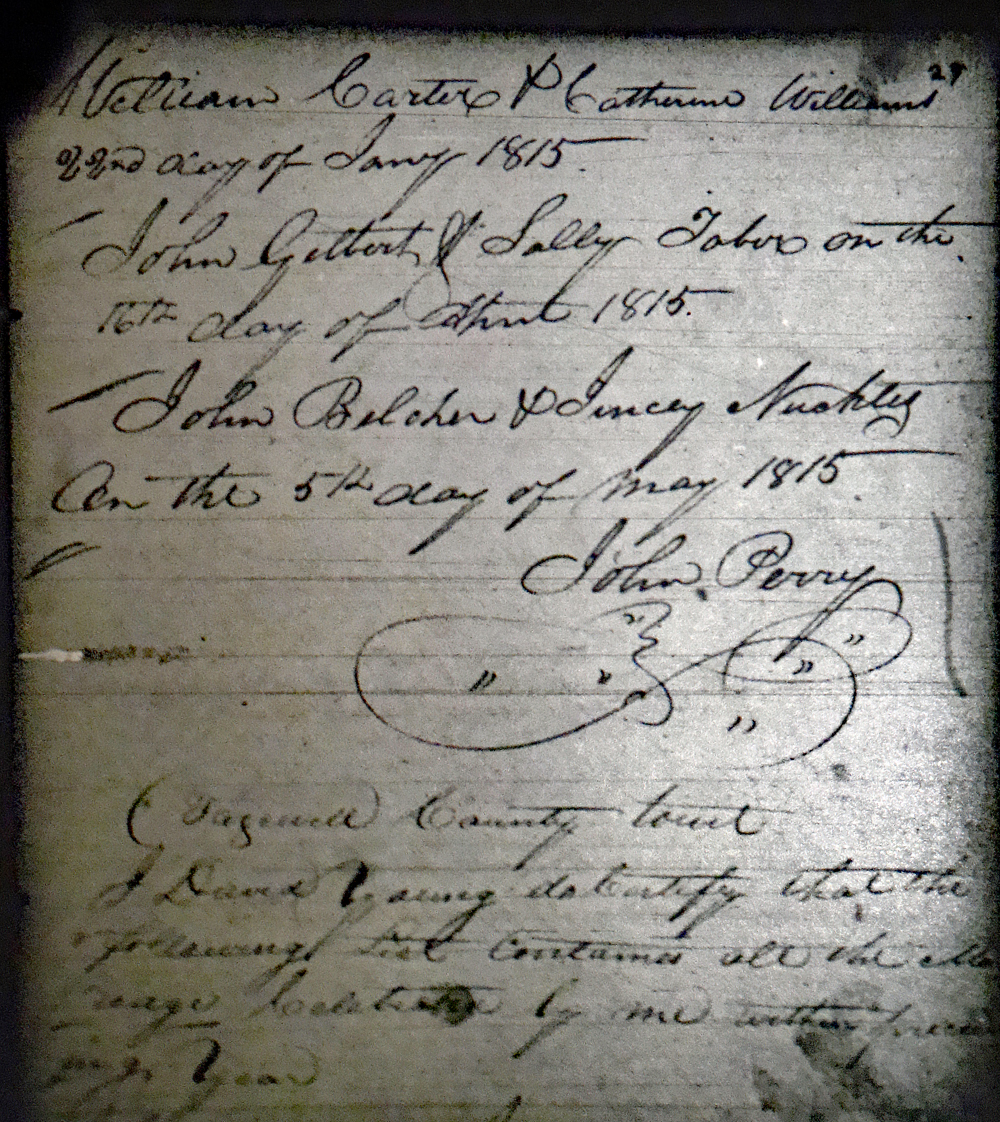 29
William Carter & Catherine Williams
22nd day of Jany 1815
John Gilbert & Sally Tabor on the
16th day of April 1815.
John Belcher & Jincey Nuckles
On the 5th day of May 1815
John Perry
(Tazewell County towit
I David Young do Certify that the
following list contains all the
by me within
Year